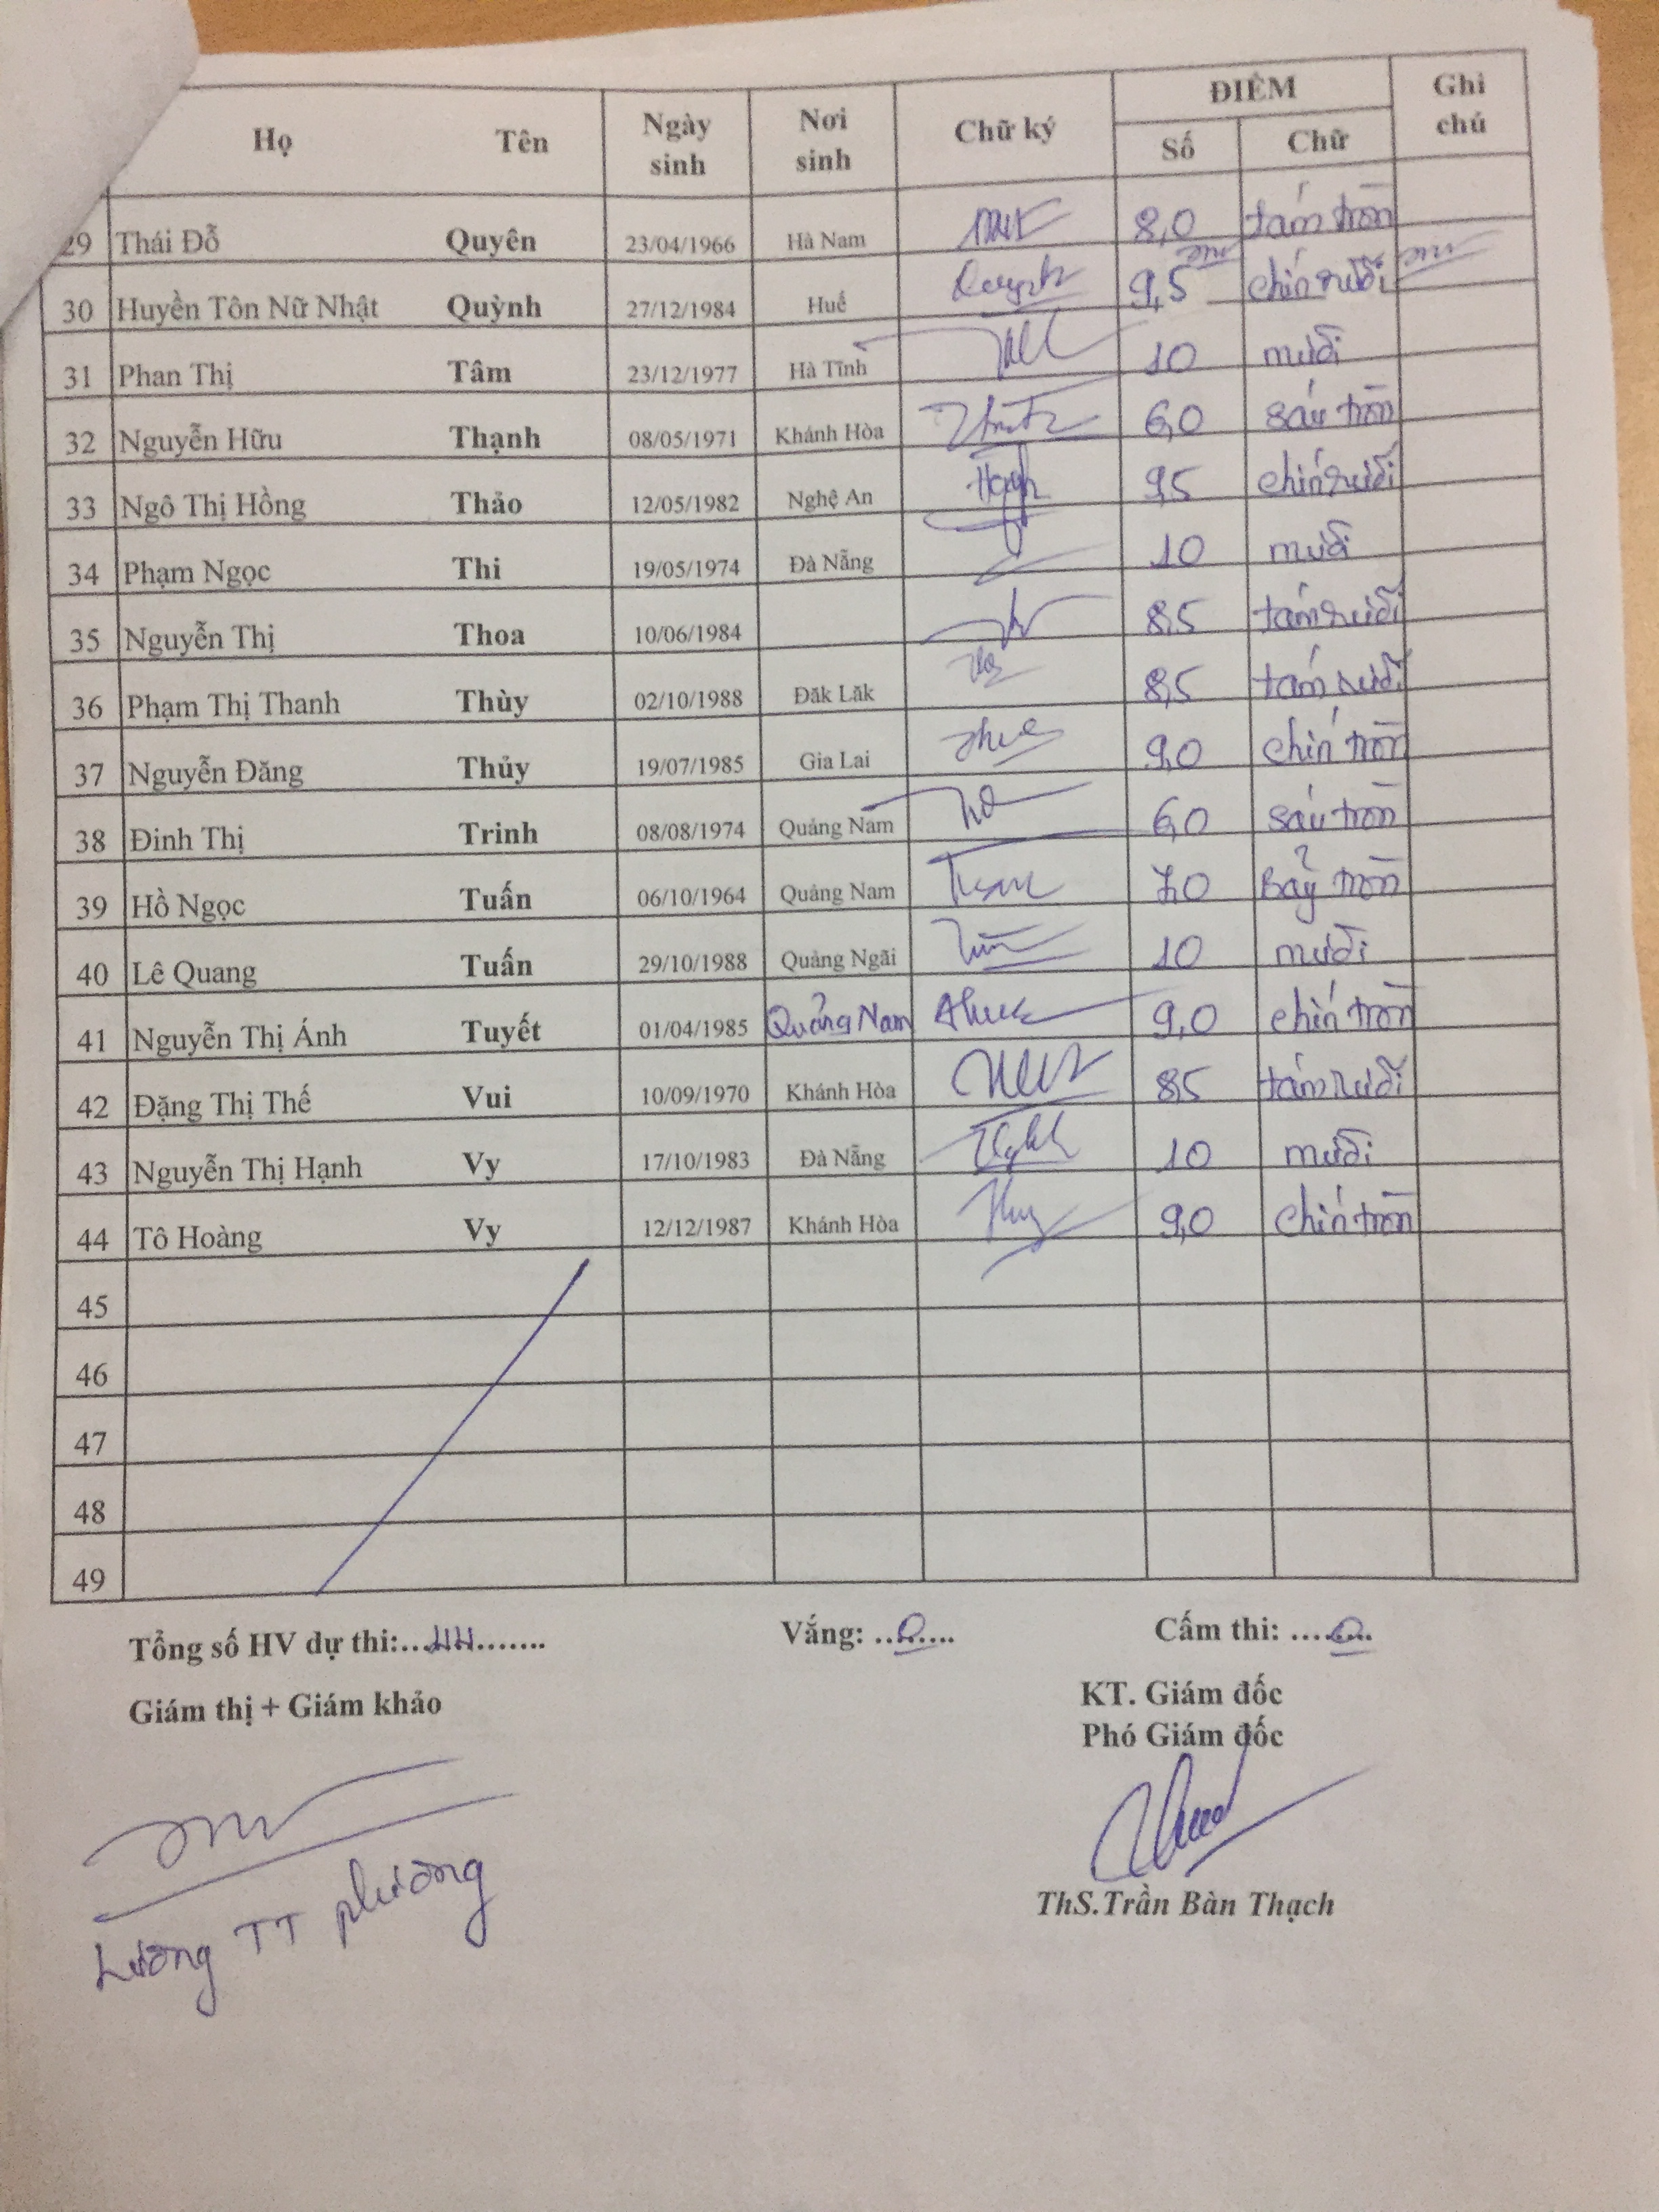 Họ Tên Ngày sinh Nơi sinh Chữ ký ĐIỂM Ghi chú
Số Chữ
29 Thái Đỗ Quyên 23/04/1966 Hà Nam 8,0 tám tròn
30 Huyền Tôn Nữ Nhật Quỳnh 27/12/1984 Huế 9,5 chín rưỡi
31 Phan Thị Tâm 23/12/1977 Hà Tĩnh 10 mười
32 Nguyễn Hữu Thạnh 08/05/1971 Khánh Hòa 6,0 sáu tròn
33 Ngô Thị Hồng Thảo 12/05/1982 Nghệ An 9,5 chín rưỡi
34 Phạm Ngọc Thi 19/05/1974 Đà Nẵng 10 mười
35 Nguyễn Thị Thoa 10/06/1984 8,5 tám rưỡi
36 Phạm Thị Thanh Thùy 02/10/1988 Đăk Lăk 8,5 tám rưỡi
37 Nguyễn Đăng Thủy 19/07/1985 Gia Lai 9,0 chín tròn
38 Đinh Thị Trinh 08/08/1974 Quảng Nam 6,0 sáu tròn
39 Hồ Ngọc Tuấn 06/10/1964 Quảng Nam 7,0 Bảy tròn
40 Lê Quang Tuấn 29/10/1988 Quảng Ngãi 10 mười
41 Nguyễn Thị Ánh Tuyết 01/04/1985 Quảng Nam 9,0 chín tròn
42 Đặng Thị Thế Vui 10/09/1970 Khánh Hòa 8,5 tám rưỡi
43 Nguyễn Thị Hạnh Vy 17/10/1983 Đà Nẵng 10 mười
44 Tô Hoàng Vy 12/12/1987 Khánh Hòa 9,0 chín tròn
45
46
47
48
49
Tổng số HV dự thi:...44....... Vắng: ..0.... Cấm thi: ....0..
Giám thị + Giám khảo KT. Giám đốc
Phó Giám đốc
ThS.Trần Bàn Thạch
Lương TT phương